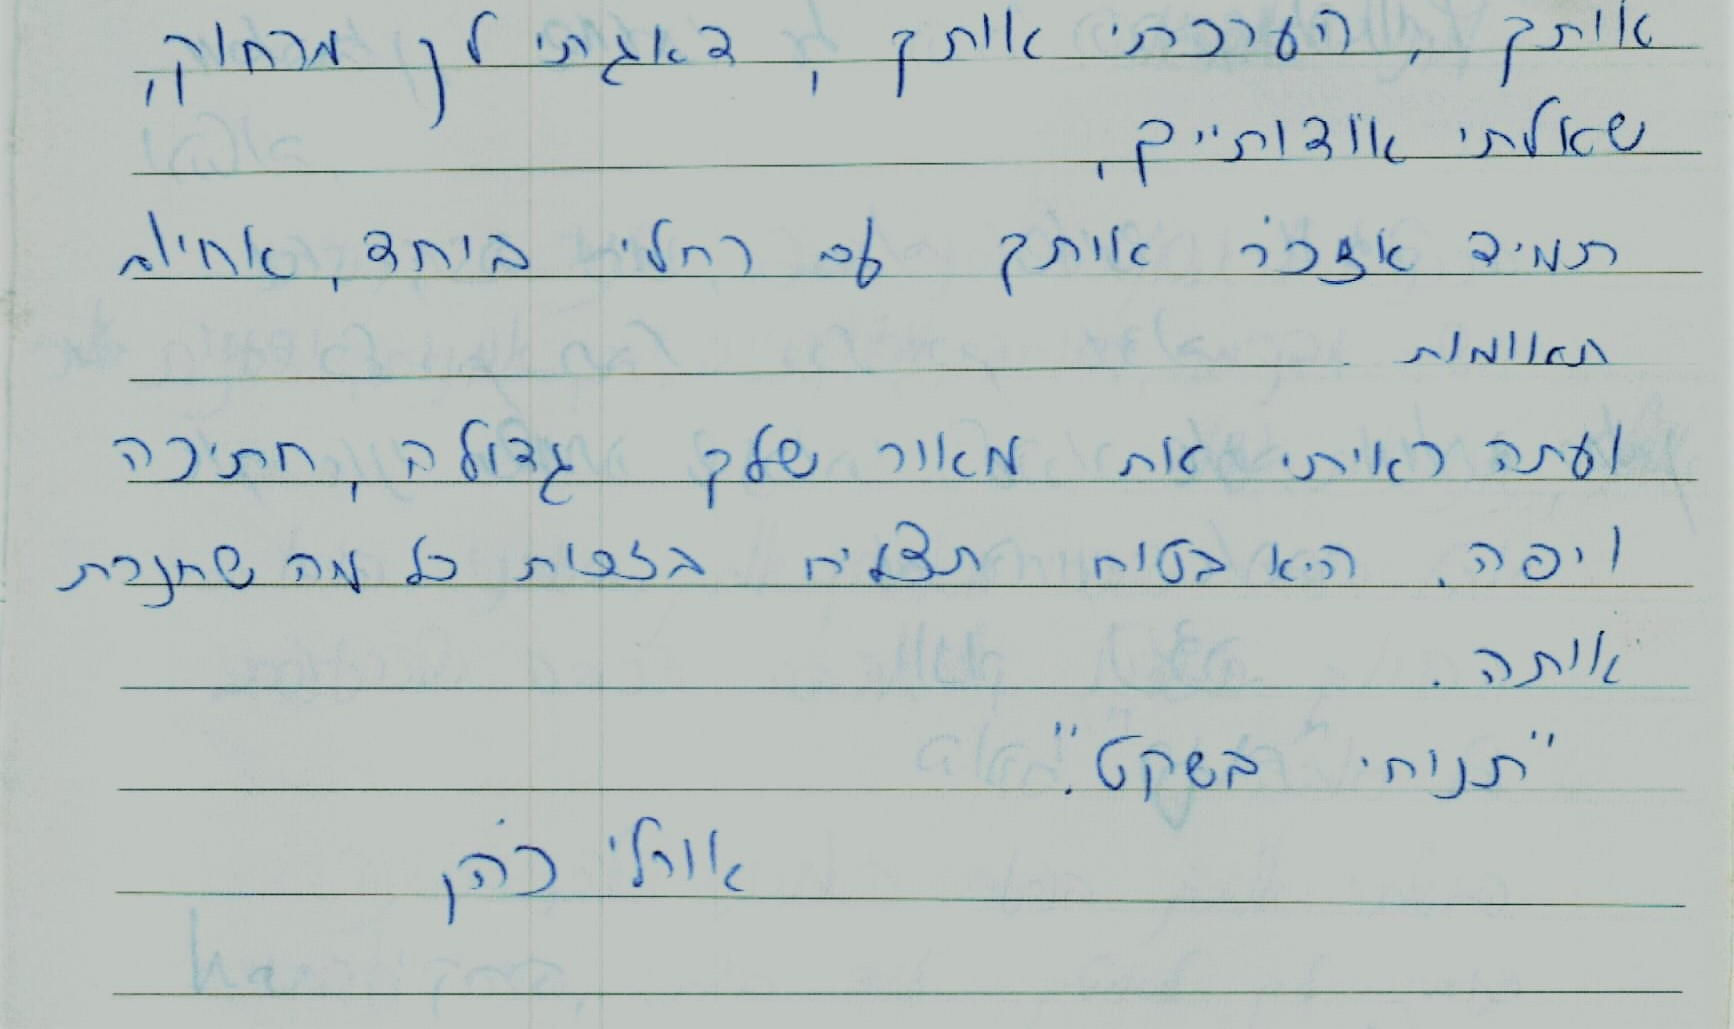 אותך, הערכתי אותך, דאגתי לך מרחוק,
שאלתי אודותייך,
תמיד אזכר אותך עם רחלי ביחד, אחיות
תאומות.
ועתה ראיתי את מאור שלך גדולה, חתיכה
ויפה. היא בטוח תצליח בזכות כל מה שחנכת
אותה.
"תנוחי בשקט."
אורלי כהן